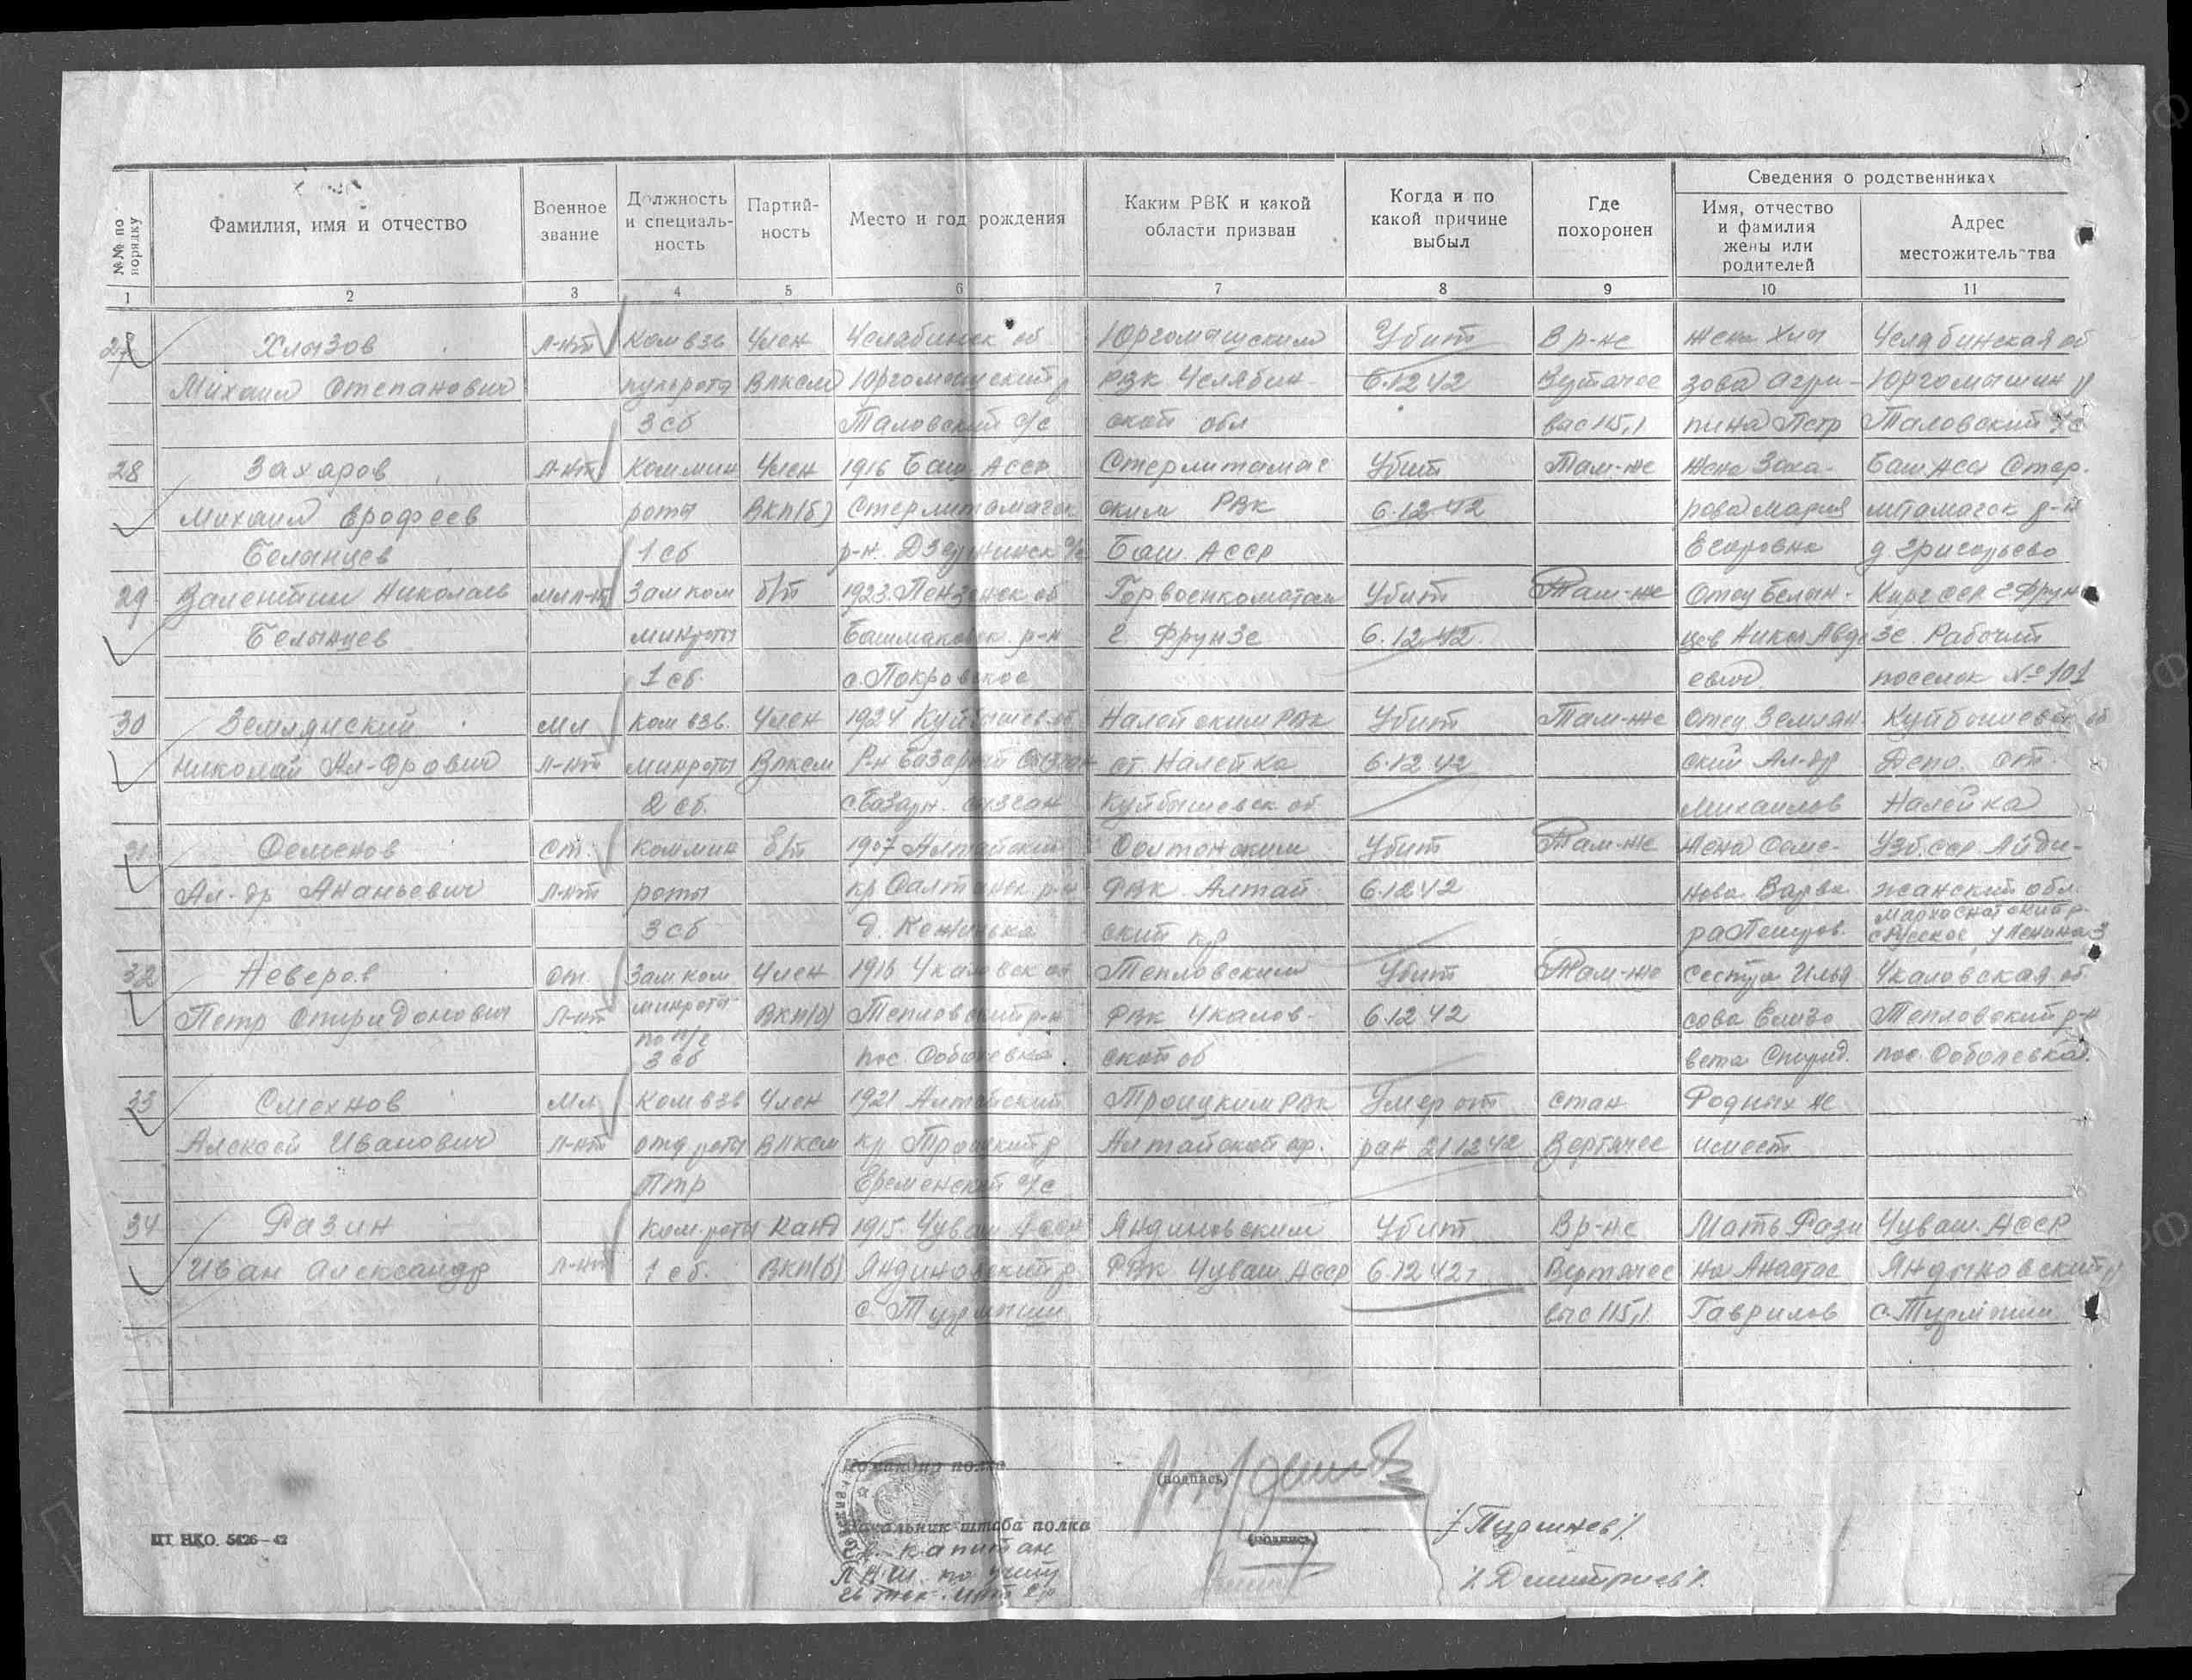 №№ по порядку
Фамилия, имя и отчество
Военное звание
Должность и специаль- ность
Партий- ность
Место и год рождения
Каким РВК и какой области призван
Когда и по какой причине выбыл
Где похоронен
Сведения о родственниках
Имя, отчество и фамилия жены или родителей
Адрес местожительства
1 2 3 4 5 6 7 8 9 10 11
27 Хлызов л-нт Ком взв Член Челябинск об Юргомышским Убит В р-не жена Хлы Челябинская об
Михаил Степанович пульрота ВЛКСМ Юргомышский р РВК Челябин- 6.12.42 зова Агри- Юргомышин р
3 сб Таловский с/с ской обл выс 115,1 пина Петр Таловский с/с
28 Захаров л-нт Ком мин Член 1916 Баш АССР Стерлитамак Убит Там-же Жена Заха- Баш АССР Стер.
Михаил Ерофеев роты ВКП(б) Стерлитамакск ским РВК 6.12.42 рова Мария
Беланцев 1 сб р-н. Дзержинск с/с Баш. АССР Егоровна д Григорьево
29 Валентин Николаев мл л-нт Зам ком б/п 1923 Пензенск об Горвоенкоматом Убит Там-же Отец Белын- Кирг ССР г Фрун
Белынцев минроты Башмаковск. р-н г Фрунзе 6.12.42. цев Никол Авде зе Рабочий
1 сб. с. Покровское евич поселок № 101
30 Землянский Мл Ком взв. Член 1924 Куйбышев об Налейским РВК Убит Там-же Отец Землян- Куйбышевск об
Николай Ал-дрович л-нт минроты ВЛКСМ Р-н Базарный Сызган ст. Налейка 6.12.42 ский Ал-др Депо. ст.
2 сб. с Базарн. сызган Куйбышевск об Михайлов Налейка
31 Семенов Ст. Ком мин б/п 1907 Алтайский Солтонским Убит Там-же Жена Семе- Узб. ССР
Ал-др Ананьевич л-нт роты кр Салтонск р-н РВК Алтай 6.12.42 нова Варва жанский обл.
3 сб д. ский кр ра Петров. с Русское у Ленина 3
32 Неверов ст. Зам ком Член 1916 Чкаловск об Тепловским Убит Там-же сестра Илья Чкаловская об
Петр Спиридонович л-нт минроты ВКП(б) Тепловский р-н РВК Чкалов- 6.12.42 сова Елиза Тепловский р-н
по п/ч
3 сб пос. Соболевка. ской об вета Спирид. пос. Соболевка
33 Смехнов Мл Ком взв Член 1921 Алтайский Троицким РВК Умер от стан Родных не
Алексей Иванович л-нт отд роты ВЛКСМ кр Троицкий р Алтайской кр. ран 21 12 42 Вертячее имеет
ПТР Еременский с/с
34 Разин Ком. роты Канд 1915. Чуваш АССР Яндиковским Убит В р-не Мать Рази Чуваш. АССР
Иван Александр л-нт 1 сб. ВКП(б) Яндиковский р РВК Чуваш АССР 6.12.42 Вертячее на Анастас Яндыковский р
с. Турмыши выс 115,1 Гаврилов с. Турмыши
Командир полка
(подпись)
Начальник штаба полка
(подпись)
Гв. Капитан
/Турпинев/.
ПНШ. по учету
Гв тех. инт 2 р
/. Дмитриев/.
ШТ НКО. 5426—42